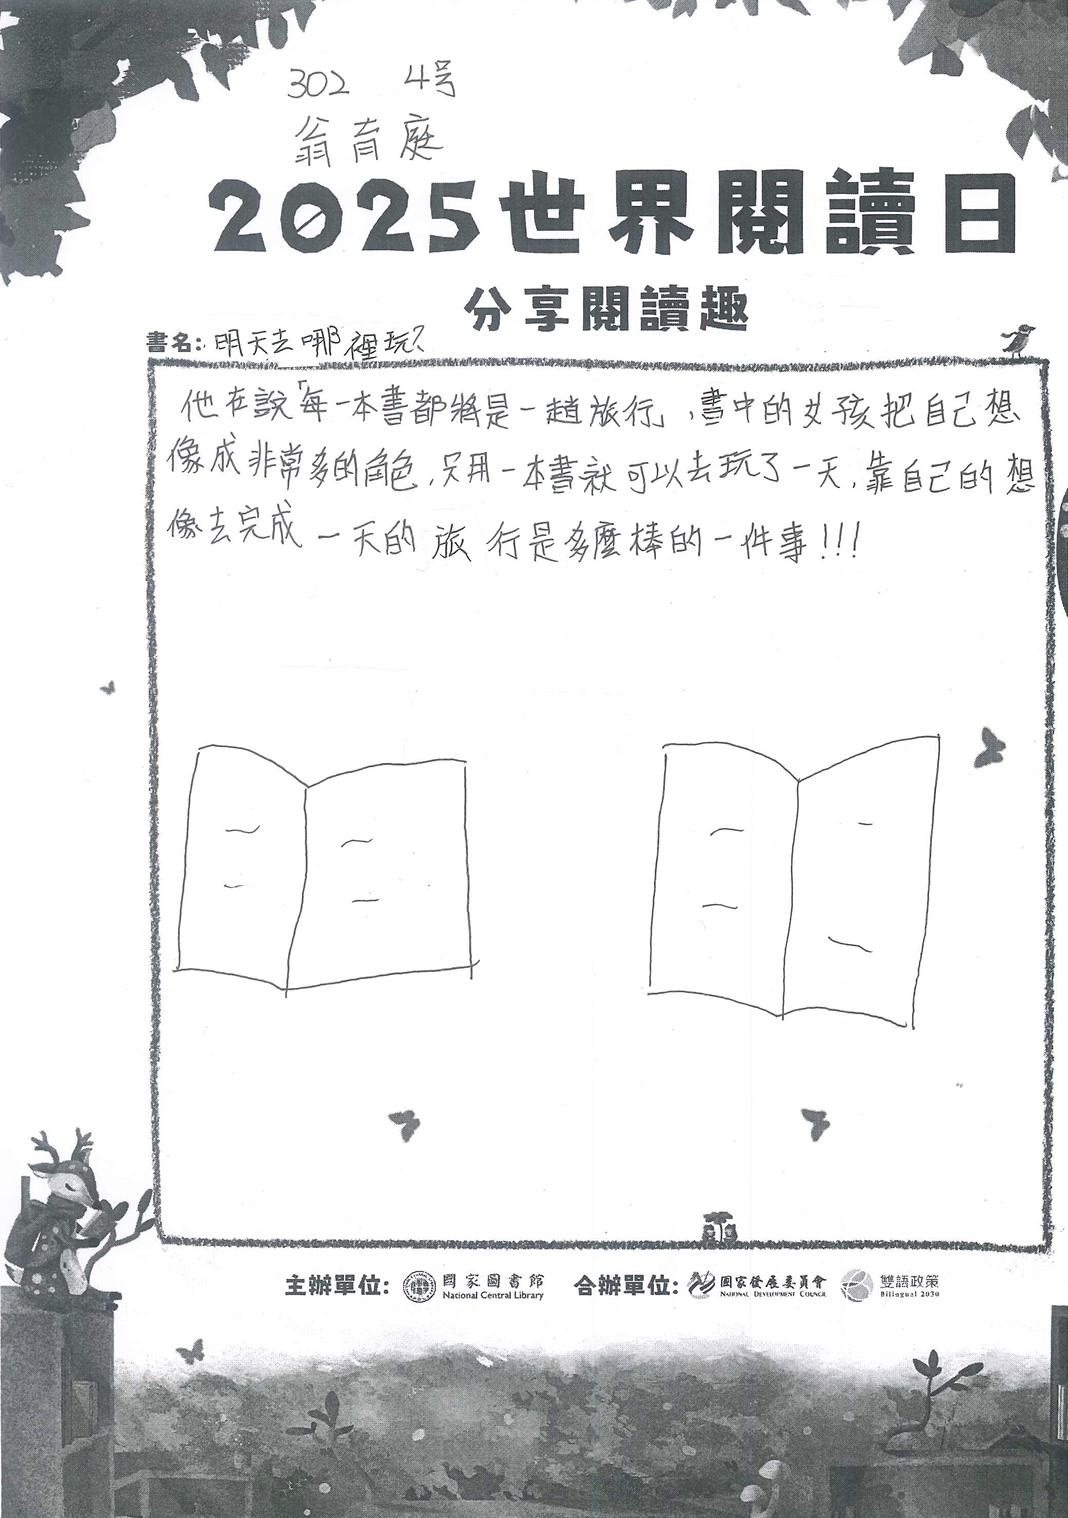 302 4号
翁育庭
2025世界閱讀日
分享閱讀趣
書名: 明天去哪裡玩?
他在說「每一本書都將是一趟旅行」,書中的女孩把自己想
像成非常多的角色,只用一本書就可以去玩了一天,靠自己的想
像去完成一天的旅行是多麼棒的一件事!!!
主辦單位: 國家圖書館 National Central Library 合辦單位: 國家發展委員會 National Development Council 雙語政策 Bilingual 2030